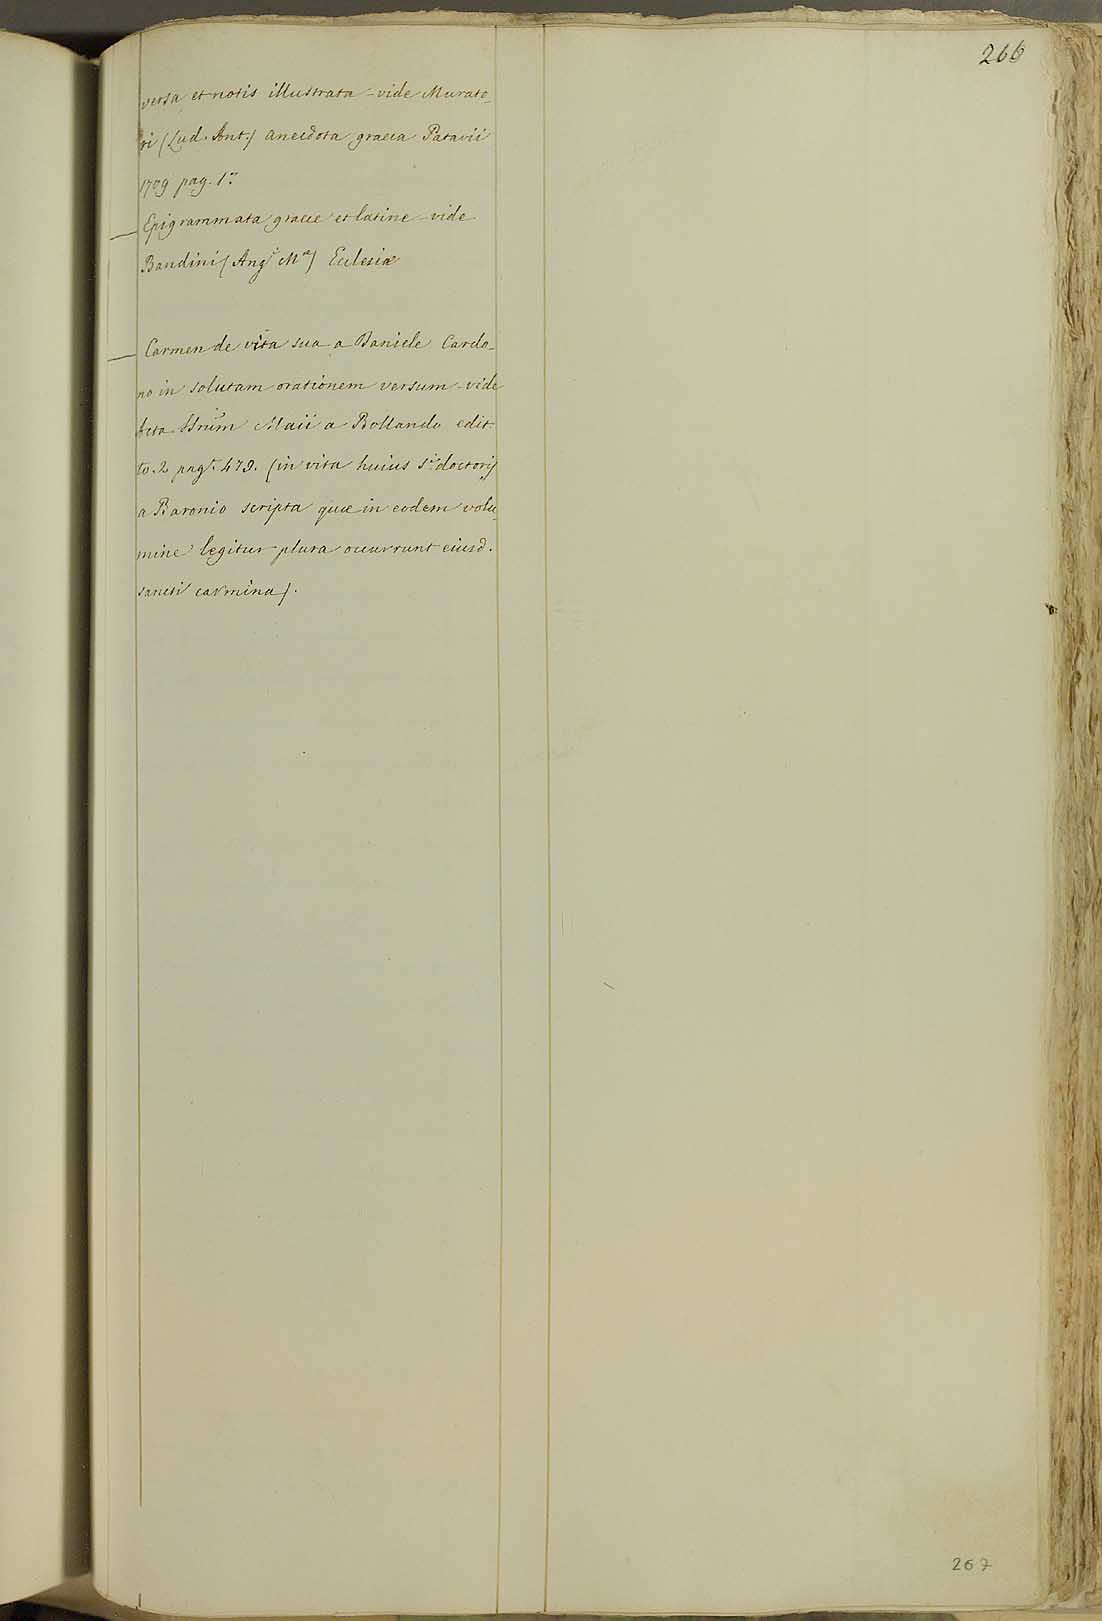 266
versa et notis illustrata - vide Murato-
ri (Lud. Ant.) anecdota graeca Patavii
1709 pag. 1.
Epigrammata graece et latine - vide
Bandini (Ang.i M.ae) Eclesiæ
Carmen de vita sua a Daniele Cardo-
no in solutam orationem versum - vide
Acta SSrum Maii a Bollando edit.
to. 2 pag. 479. (in vita huius S.i doctoris
a Baronio scripta quæ in eodem volu-
mine legitur plura occurrunt eiusd.
sancti carmina).
267